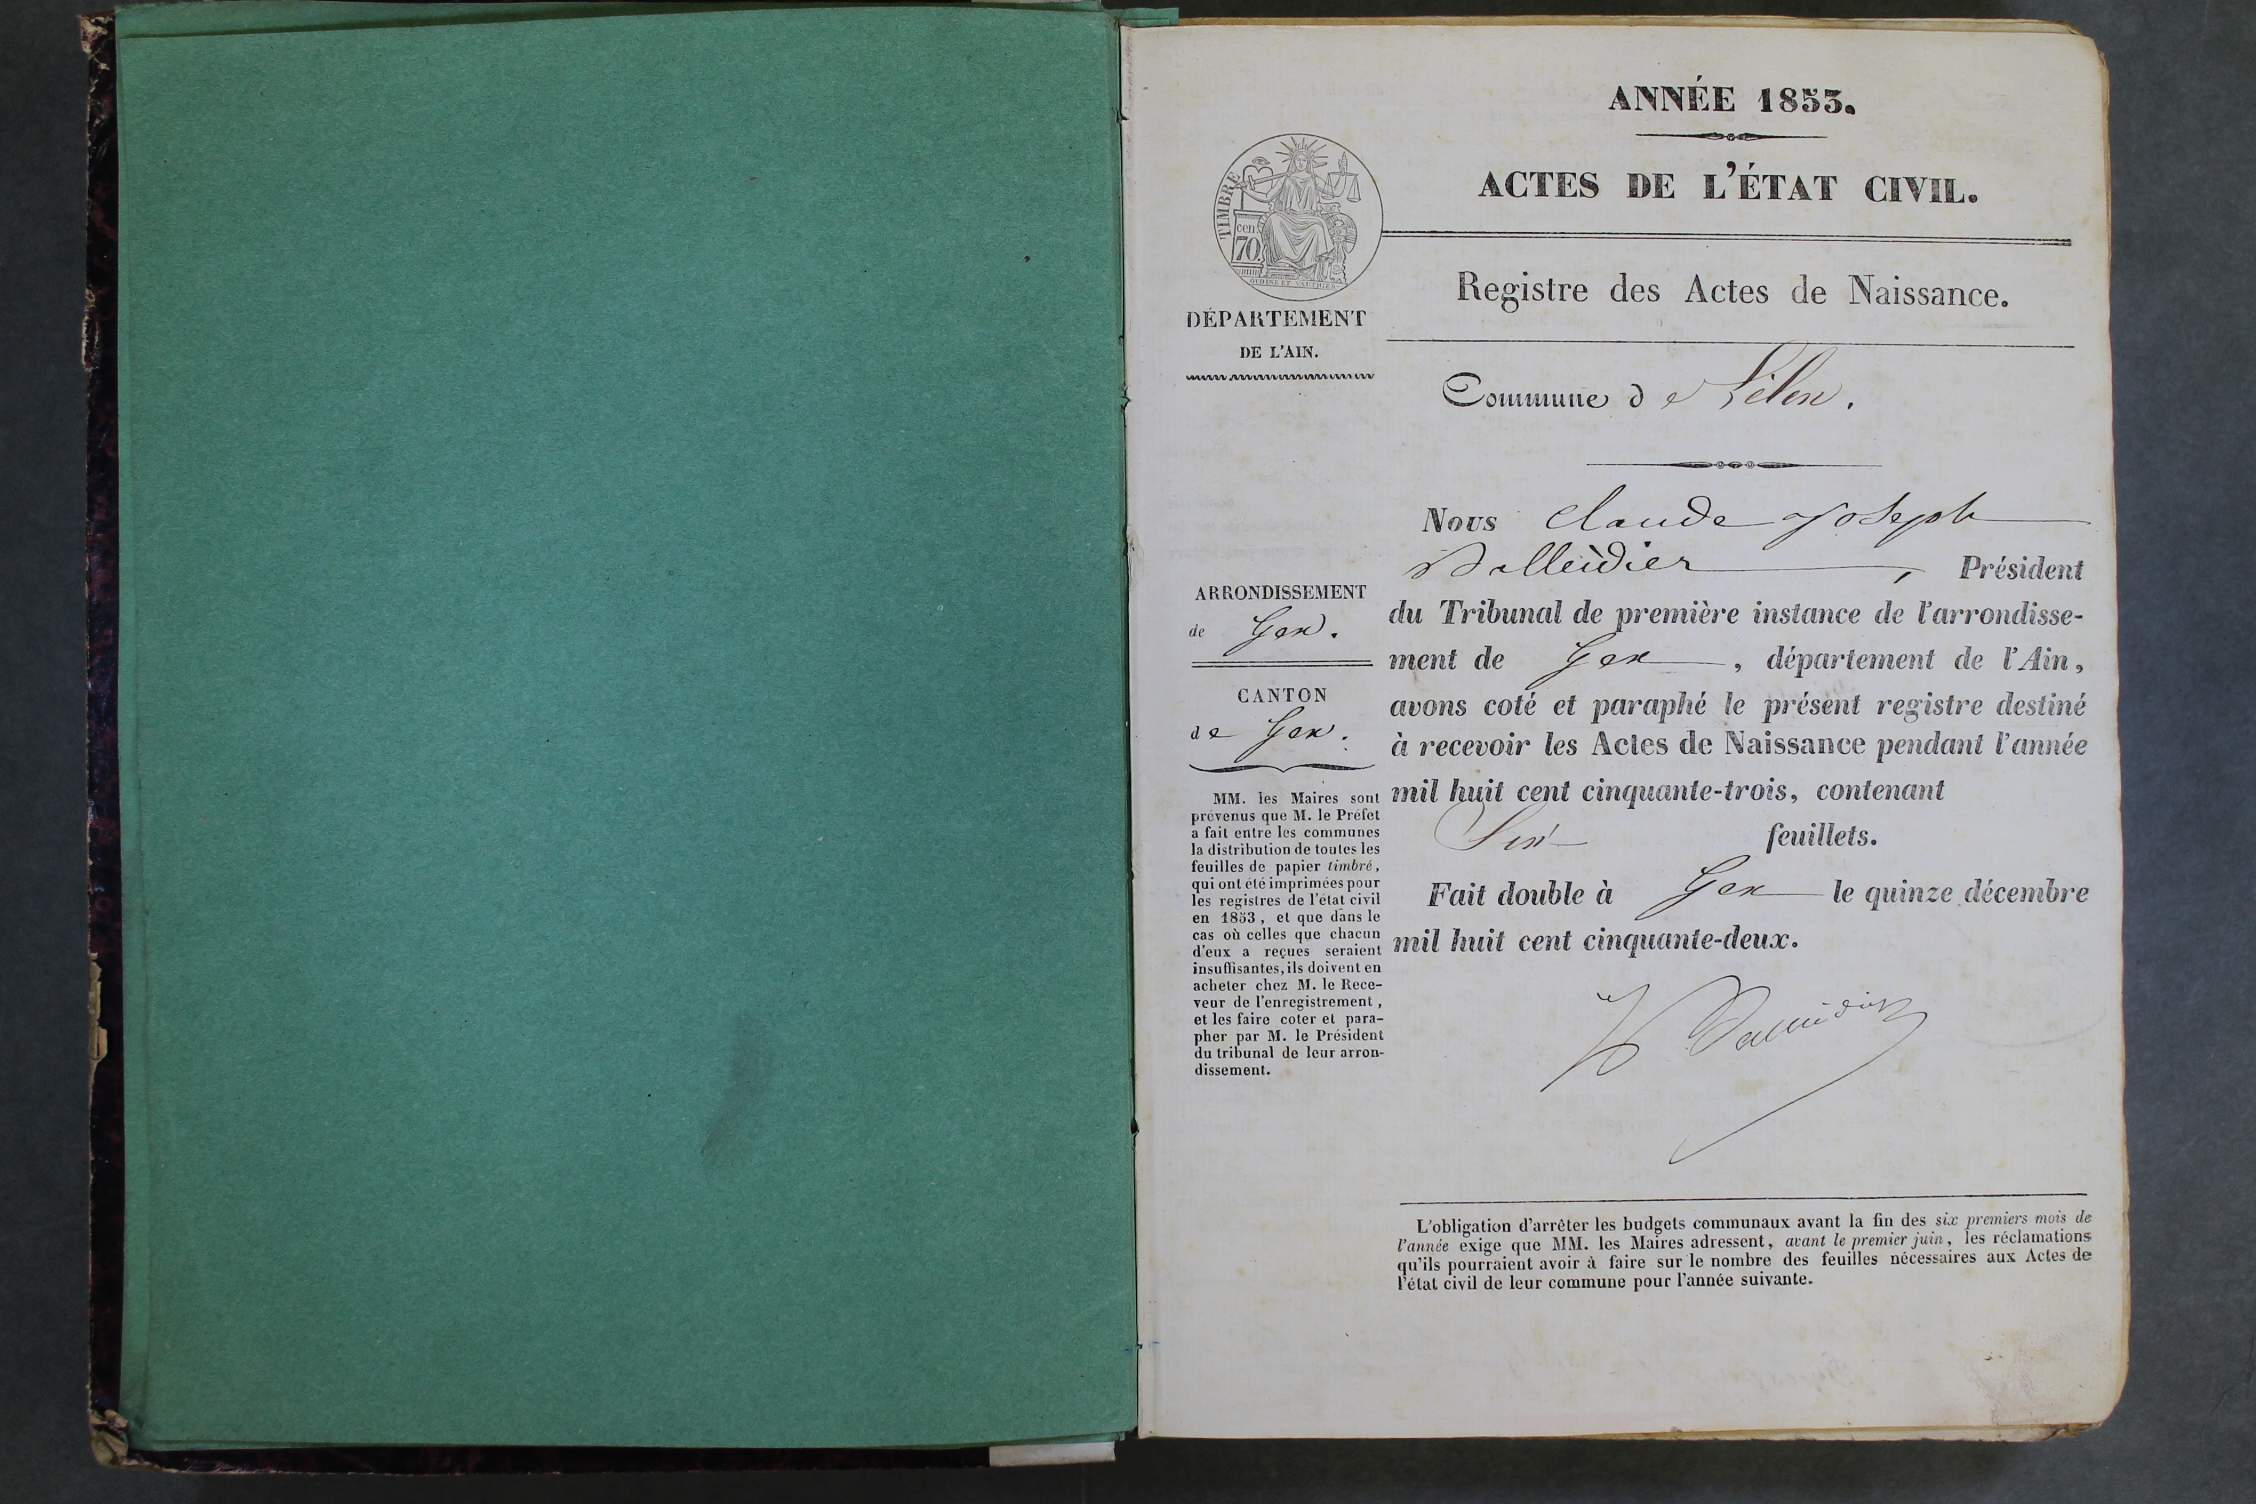 ANNÉE 1853.
ACTES DE L'ÉTAT CIVIL.
TIMBRE
cen.
70
OUDINÉ ET VAUTHIER
Registre des Actes de Naissance.
DÉPARTEMENT
DE L'AIN.
Commune de Lélex.
Nous Claude Joseph
Balleidier, Président
du Tribunal de première instance de l'arrondisse-
ment de Gex, département de l'Ain,
avons coté et paraphé le présent registre destiné
à recevoir les Actes de Naissance pendant l'année
mil huit cent cinquante-trois, contenant
Six feuillets.
Fait double à Gex le quinze décembre
mil huit cent cinquante-deux.
Balleidier
ARRONDISSEMENT
de Gex.
CANTON
de Gex.
MM. les Maires sont
prévenus que M. le Préfet
a fait entre les communes
la distribution de toutes les
feuilles de papier timbré,
qui ont été imprimées pour
les registres de l'état civil
en 1853, et que dans le
cas où celles que chacun
d'eux a reçues seraient
insuffisantes, ils doivent en
acheter chez M. le Rece-
veur de l'enregistrement,
et les faire coter et para-
pher par M. le Président
du tribunal de leur arron-
dissement.
L'obligation d'arrêter les budgets communaux avant la fin des six premiers mois de
l'année exige que MM. les Maires adressent, avant le premier juin, les réclamations
qu'ils pourraient avoir à faire sur le nombre des feuilles nécessaires aux Actes de
l'état civil de leur commune pour l'année suivante.